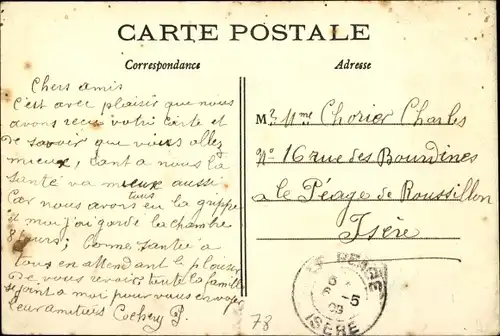 CARTE POSTALE
Correspondance
Adresse
Chers amis
C'est avec plaisir que nous
avons recu votre carte et
de savoir que vous allez
mieux, tant a nous la
santé va mieux aussi
Car nous avons tous eu la grippe
et moi j'ai garde la chambre
8 jours; bonne santee a
tous en attendant le plaisir
de vous revoir toute la famille
se joint a moi pour vous envoyer
leur amities Cochery P.
M? Mme Chorier Charles
No 16 rue des Bourdines
a le Péage de Roussillon
Isère
LE PEAGE
ISÈRE
78